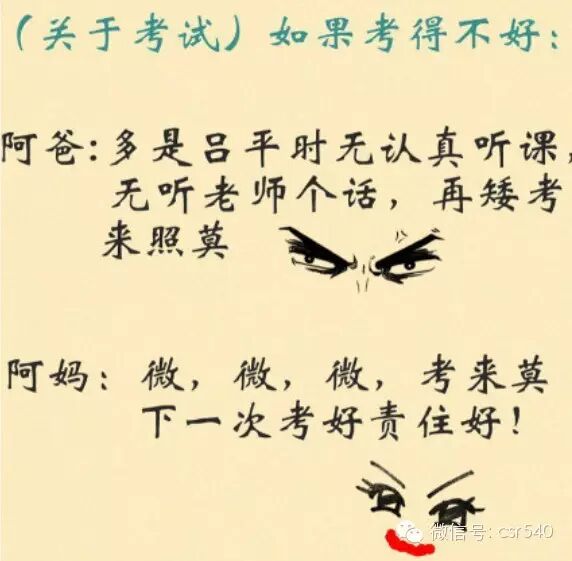 （关于考试）如果考得不好：
阿爸：多是吕平时无认真听课，
无听老师个话，再矮考
来照莫
阿妈：微，微，微，考来莫
下一次考好责住好！
微信号：csr540